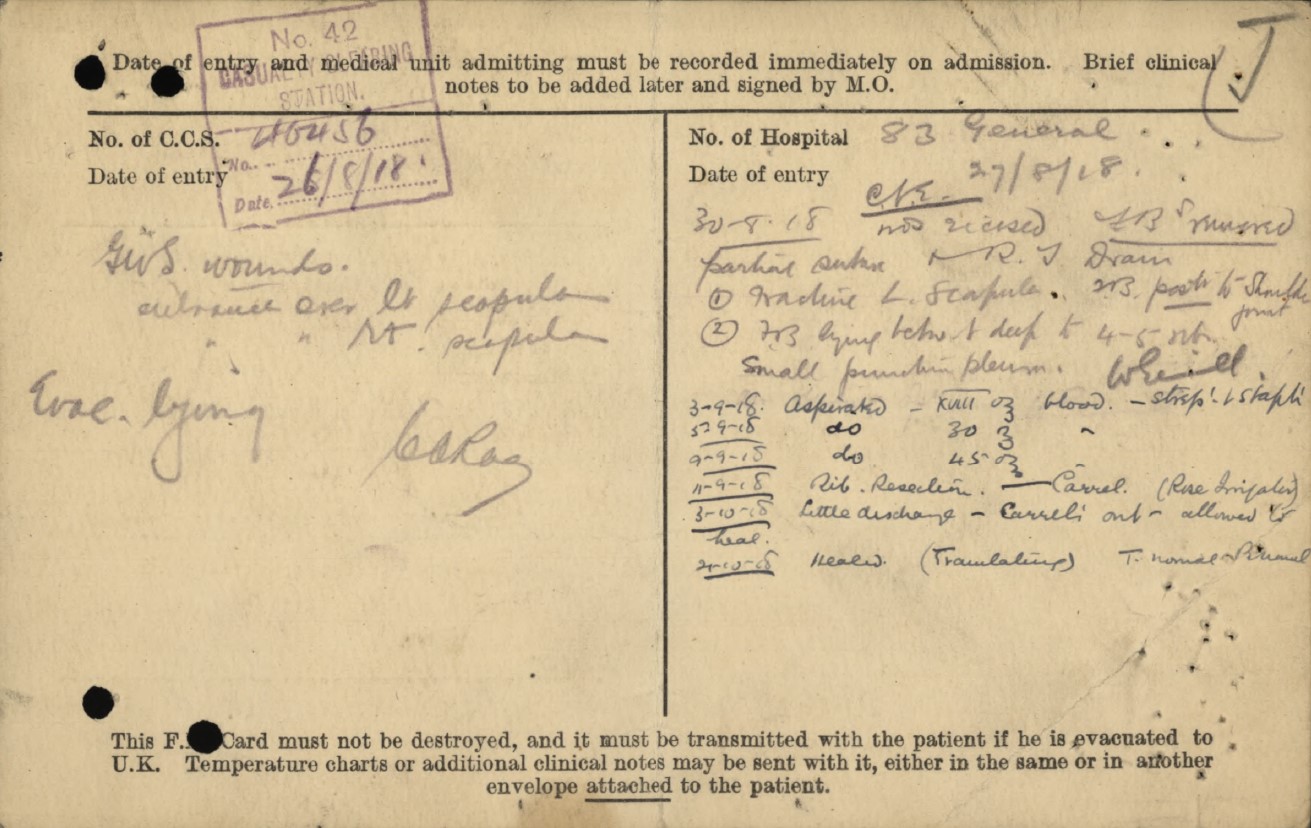 No. 42
CASUALTY CLEARING
STATION.
No.
Date. 26/8/18.
J
Date of entry and medical unit admitting must be recorded immediately on admission. Brief clinical
notes to be added later and signed by M.O.
No. of C.C.S.
Date of entry
GWS. wounds.
entrance over Lt scapula
" " Rt. scapula
Evac. lying
No. of Hospital 83 General
Date of entry 27/8/18.
30-8-18 removed
partial suture R. T Drain
① L. Scapula. FB. post to Shoulder
joint
② FB lying deep to 4-5 rib.
Small pleura.
3-9-18. Aspirated - XVIII oz blood. - strep. & staph
5-9-18 do 30 oz "
9-9-18 do 45 oz
11-9-18 Rib. Resection. — Carrel. (Rose Irrigator)
3-10-18 Little discharge - Carrel's out - allowed to
heal.
21-10-18 Healed. T. normal
This F. Card must not be destroyed, and it must be transmitted with the patient if he is evacuated to
U.K. Temperature charts or additional clinical notes may be sent with it, either in the same or in another
envelope attached to the patient.